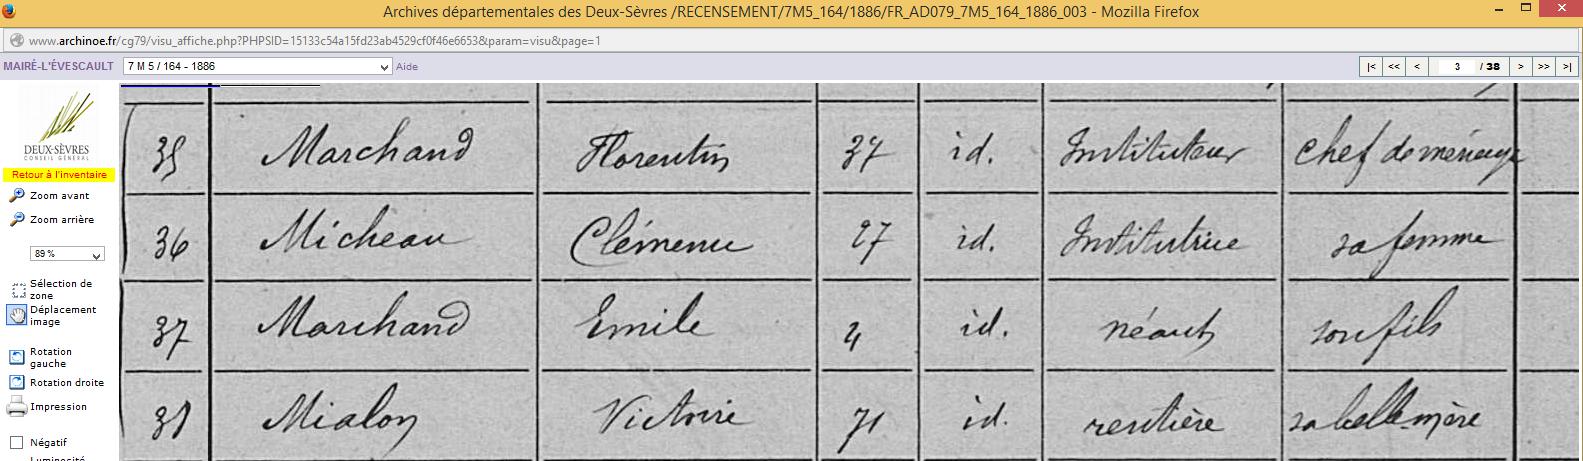 Archives départementales des Deux-Sèvres /RECENSEMENT/7M5_164/1886/FR_AD079_7M5_164_1886_003 - Mozilla Firefox
www.archinoe.fr/cg79/visu_affiche.php?PHPSID=15133c54a15fd23ab4529cf0f46e6653&param=visu&page=1
MAIRÉ-L'ÉVESCAULT 7 M 5 / 164 - 1886 Aide |< << < 3 / 38 > >> >|
DEUX-SÈVRES
CONSEIL GÉNÉRAL
Retour à l'inventaire
Zoom avant
Zoom arrière
89 %
Sélection de
zone
Déplacement
image
Rotation
gauche
Rotation droite
Impression
Négatif
Luminosité
35 Marchand Florentin 37 id. Instituteur chef de ménage
36 Micheau Clémence 27 id. Institutrice sa femme
37 Marchand Emile 4 id. néant son fils
38 Mialon Victoire 71 id. rentière sa belle-mère